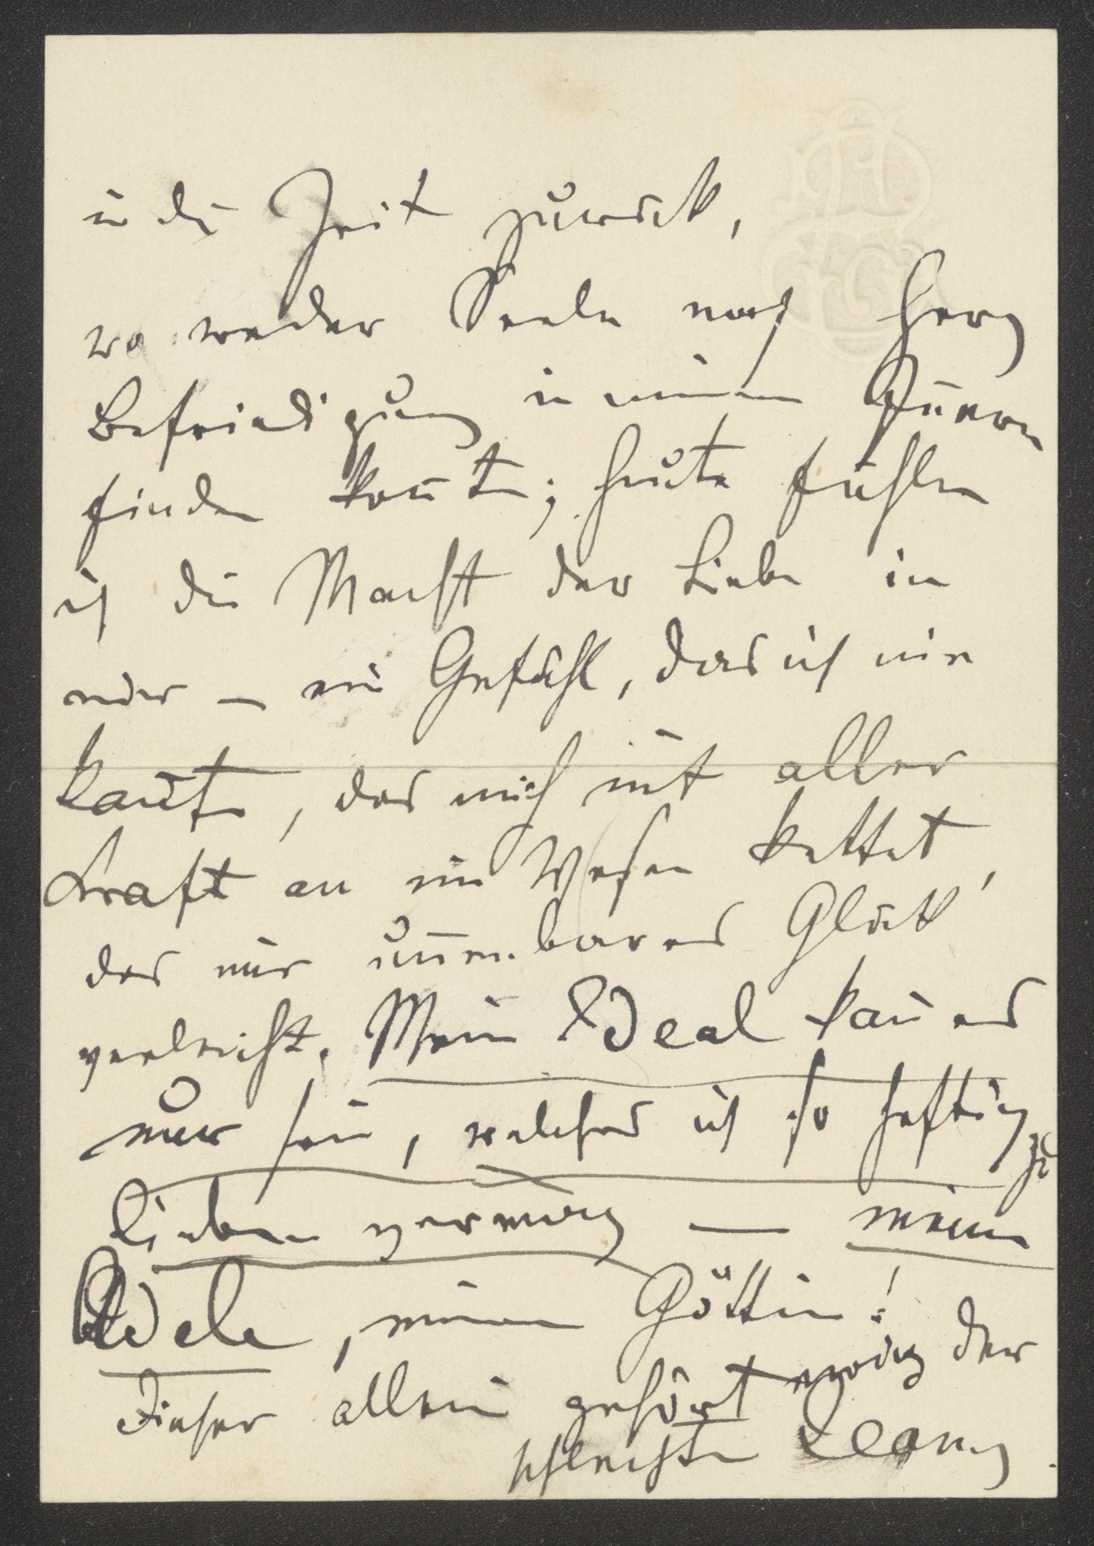 in die Zeit zurück,
wo weder Seele noch Herz
Befriedigung in meinem Innern
finden konnte; heute fühle
ich die Macht der Liebe in
mir – ein Gefühl, das ich nie
kannte, das mich mit aller
Kraft an ein Wesen kettet,
das mir unnenbares Glück
verleiht. Mein Ideal kann es
nur sein, welches ich so heftig zu
lieben vermag — meine
Adele, meine Göttin!
Dieser allein gehört ewig der
schlechte Jeany